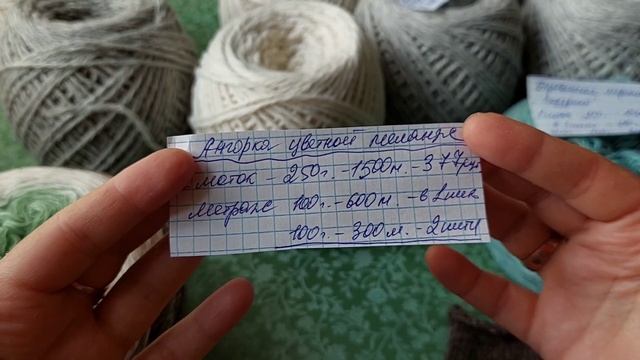 Ангорка цветной меланж
моток - 250г. - 1500м. - 377руб
метраж 100г. - 600м. - в 1нит
100г. - 300м. - 2нити